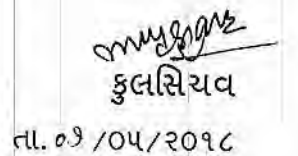 કુલસિચવ
તા. ૦૭/૦૫/૨૦૧૮